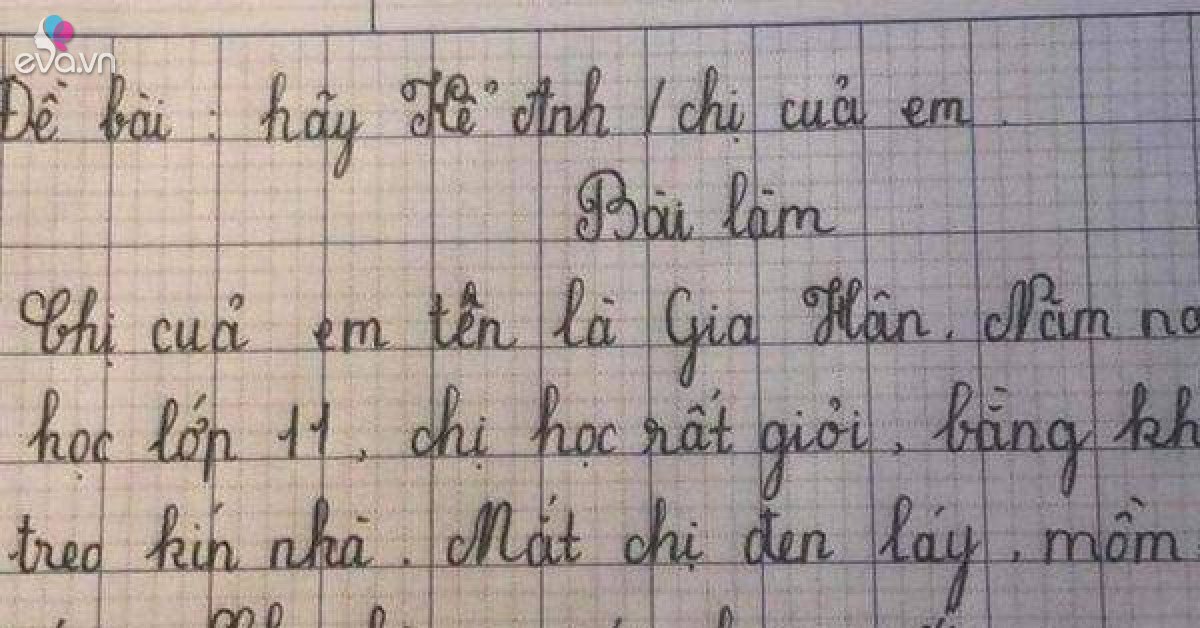 eva.vn
Đề bài : hãy Kể Anh / chị cuả em .
Bài làm
Chị cuả em tên là Gia Hân . Năm
học lớp 11 , chị học rất giỏi , bằng
treo kín nhà . Mắt chị đen láy , mồm